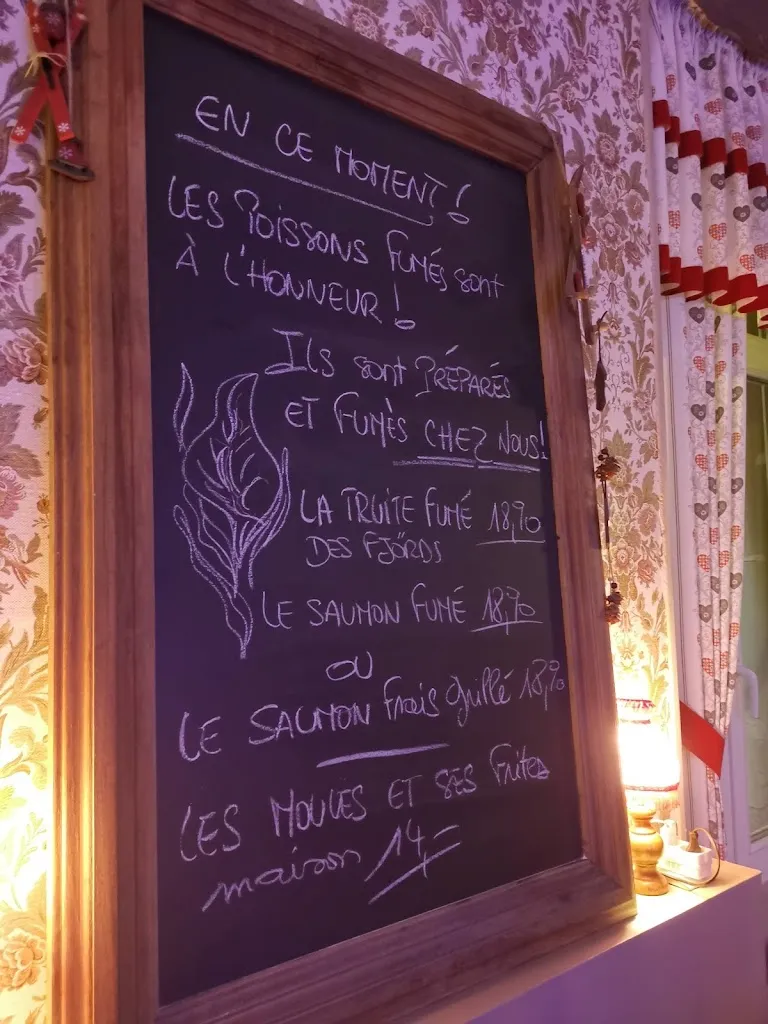 EN CE MOMENT!
LES POISSONS FUMÉS sont
À L'HONNEUR!
ILS sont PRÉPARÉS
ET FUMÈS CHEZ NOUS!
LA TRUITE FUMÉ 18,90
DES FJÖRDS
LE SAUMON FUMÉ 18,90
OU
LE SAUMON frais grillé 18,90
LES MOULES ET SES frites
maison 14,=